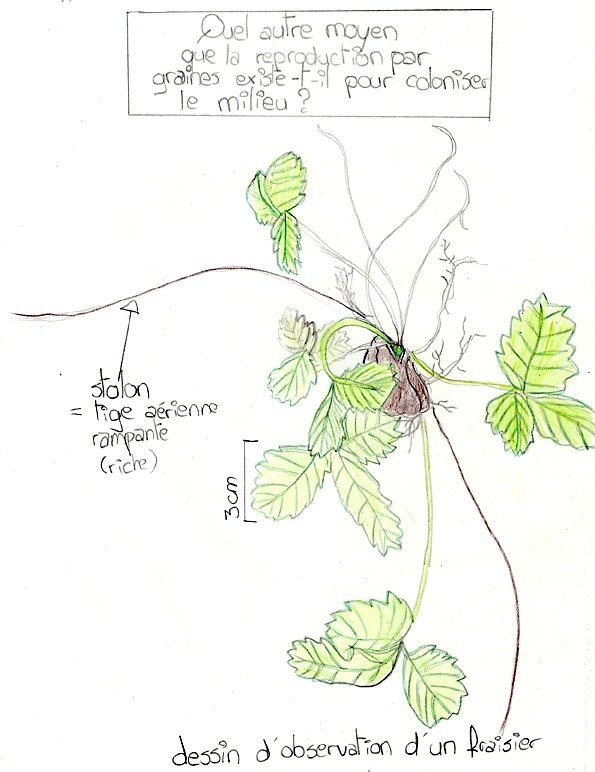 Quel autre moyen
que la reproduction par
graines existe-t-il pour coloniser
le milieu ?
stolon
= tige aérienne
rampante
(riche)
3 cm
dessin d'observation d'un fraisier